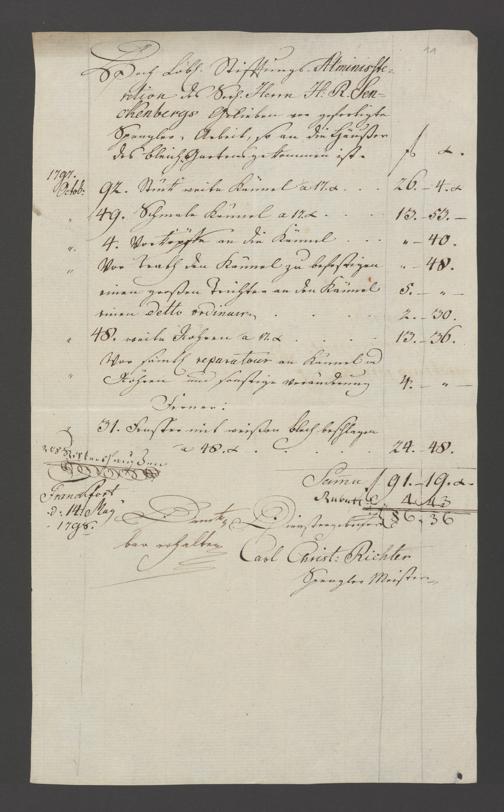 11
Hoch Löbl. Stifftungs-Administra-
ration des Seel. Herrn H. R. Sen-
ckenbergs Belieben vor gefertigte
Spengler Arbeit, so an die Häusser
des bleich Gartens gekommen ist. f x.
1797. Octob: 92. Stück weite Kännel a 17 x. . . 26. - 4. x
" 49. Schmale Kännel a 17 x. . . . 13. - 53. -
" 4. Vorköpffe an die Kännel . . . " - 40.
" Vor Drath den Kännel zu befestigen " - 48.
einen grosen Trichter an den Kännel 5. - " -
einen detto ordinairen . . . . 2. - 30.
" 48. weite Rohren a 17 x. . . . . 13. - 36.
" Vor sämtl. reparatour an Kännel und
Röhren und sonstige veränderung 4. - " -
Ferner:
31. Fenster mit weissen blech beschlagen
a 48. x . . . . . 24. - 48.
Suma f 91. - 19. x -
Rabatt 4. 43
f 86. - 36
Franckfort.
d. 14. May
1798.
Dienstergebenst
bar erhalten
Carl Christ: Richter
Spengler Meister